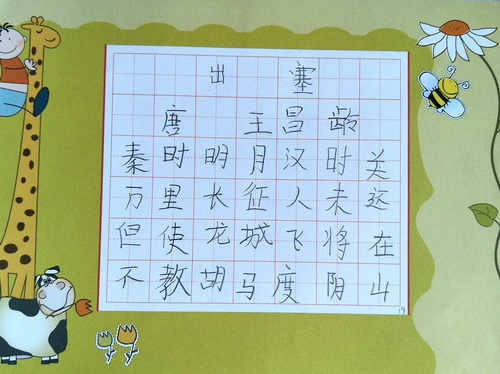 出塞
唐 王昌龄
秦时明月汉时关
万里长征人未还
但使龙城飞将在
不教胡马度阴山
19